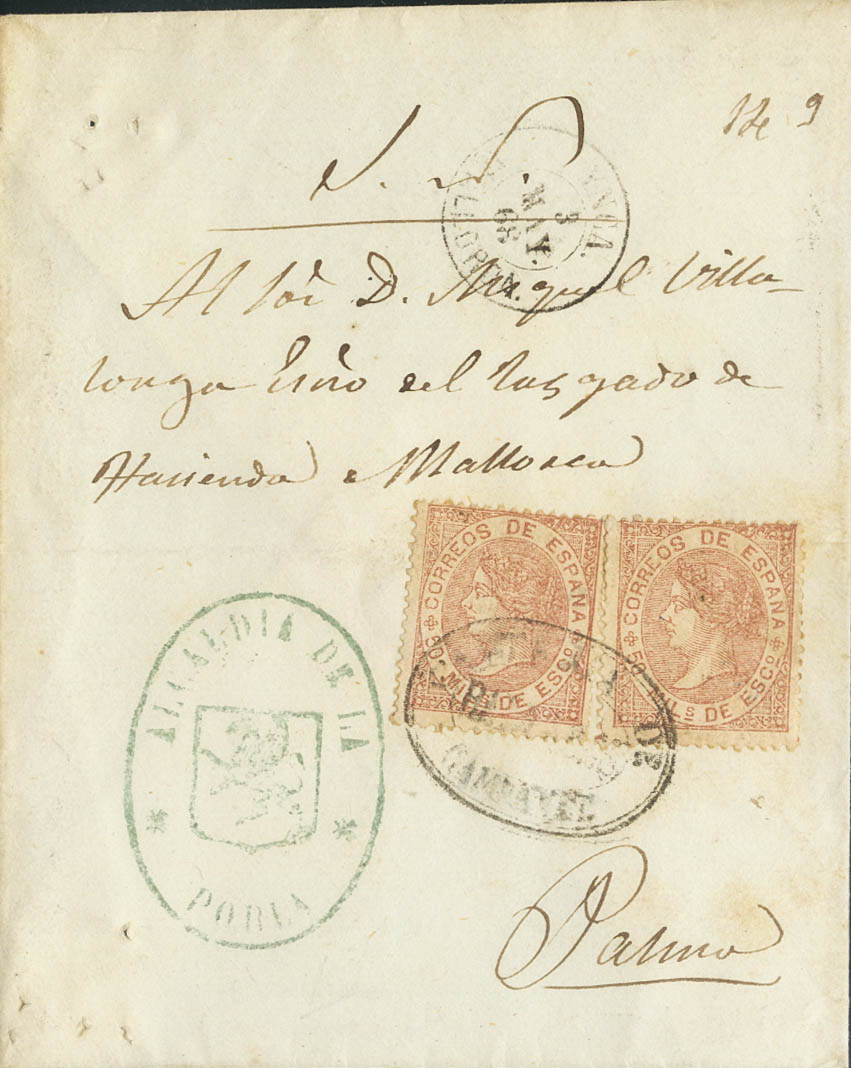 S. N.
12 9
INCA.
3
MAY.
68
Al Sor D. Miguel Villa-
longa Esno del Juzgado de
Hacienda e Mallorca
CORREOS DE ESPAÑA
50 MILs DE ESCo
CORREOS DE ESPAÑA
50 MILs DE ESCo
CAMPANET
ALCALDIA DE LA
* *
POBLA
Palma